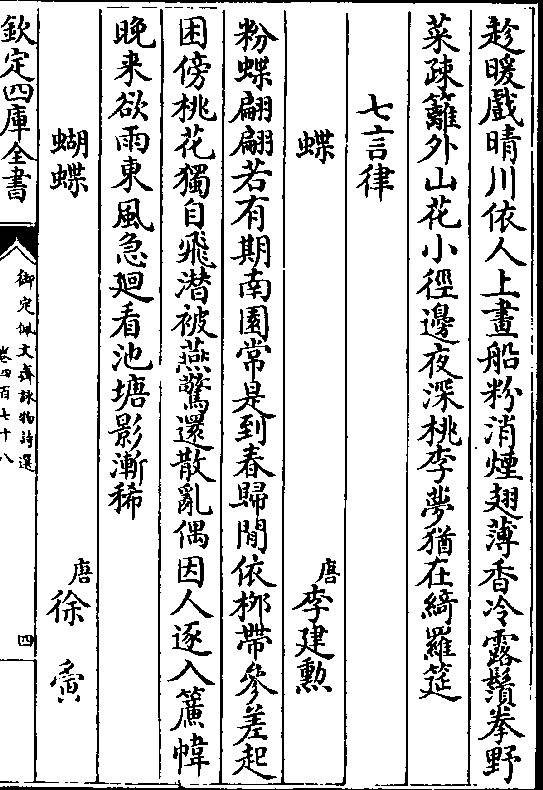 趁暖戲晴川依人上畫船粉消煙翅薄香冷露鬚拳野
菜疎籬外山花小徑邊夜深桃李夢猶在綺羅筵
七言律
蝶 唐李建勲
粉蝶翩翩若有期南園常是到春歸閒依栁帶參差起
困傍桃花獨自飛潜被燕驚還散亂偶因人逐入簾幃
晩来欲雨東風急廻看池塘影漸稀
蝴蝶 唐徐夤
欽定四庫全書
御定佩文齋詠物詩選
卷四百七十八
四